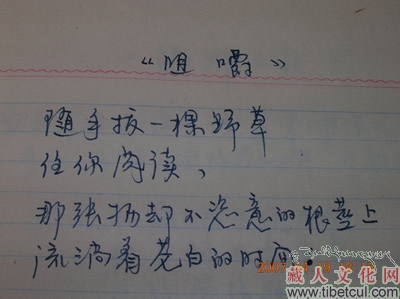 《咀嚼》
随手拔一棵野草
任你阅读，
那张扬却不恣意的根茎上
流淌着苍白的时间。
2007
藏人文化网
www.tibetcul.com